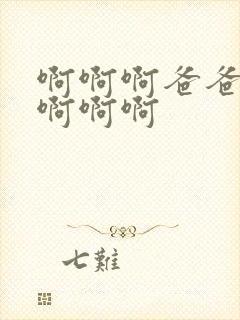 啊啊啊爸爸
啊啊啊
七難